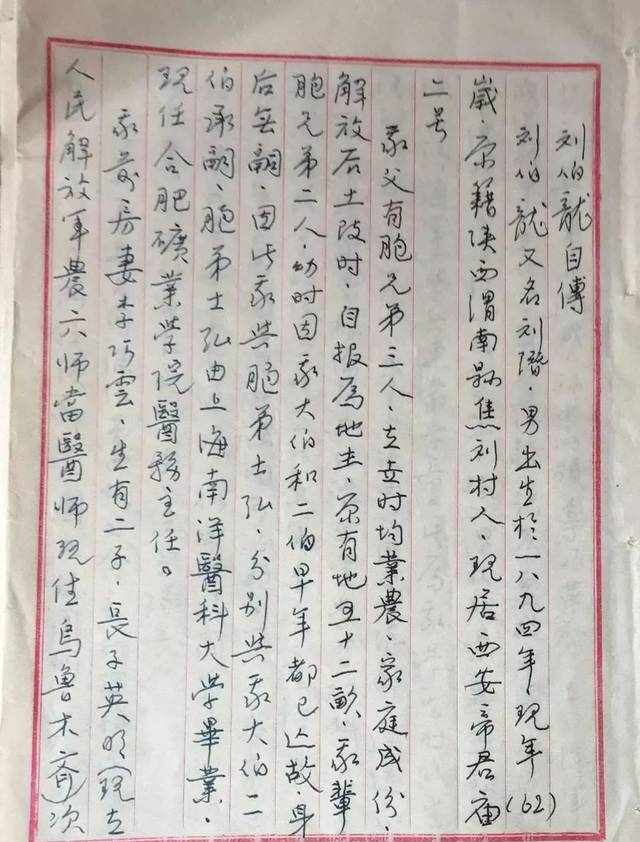 刘伯龍自傳
刘伯龍又名刘潛．男出生於一八九四年．现年(62)
歲．原籍陕西渭南縣焦刘村人．现居西安帝君庙
二号
我父有胞兄弟三人．在世时均業農．家庭成份．
解放后土改时．自报爲地主．原有地五十二畝．我輩
胞兄弟二人．幼时因我大伯和二伯早年都已亡故身
后無嗣．因此我與胞弟士弘．分别與我大伯二
伯承嗣．胞弟士弘由上海南洋醫科大学畢業．
现任合肥礦業学院醫務主任。
我前房妻李巧雲．生有二子．長子英明(现在
人民解放军農六师當醫师现住烏鲁木齊)次